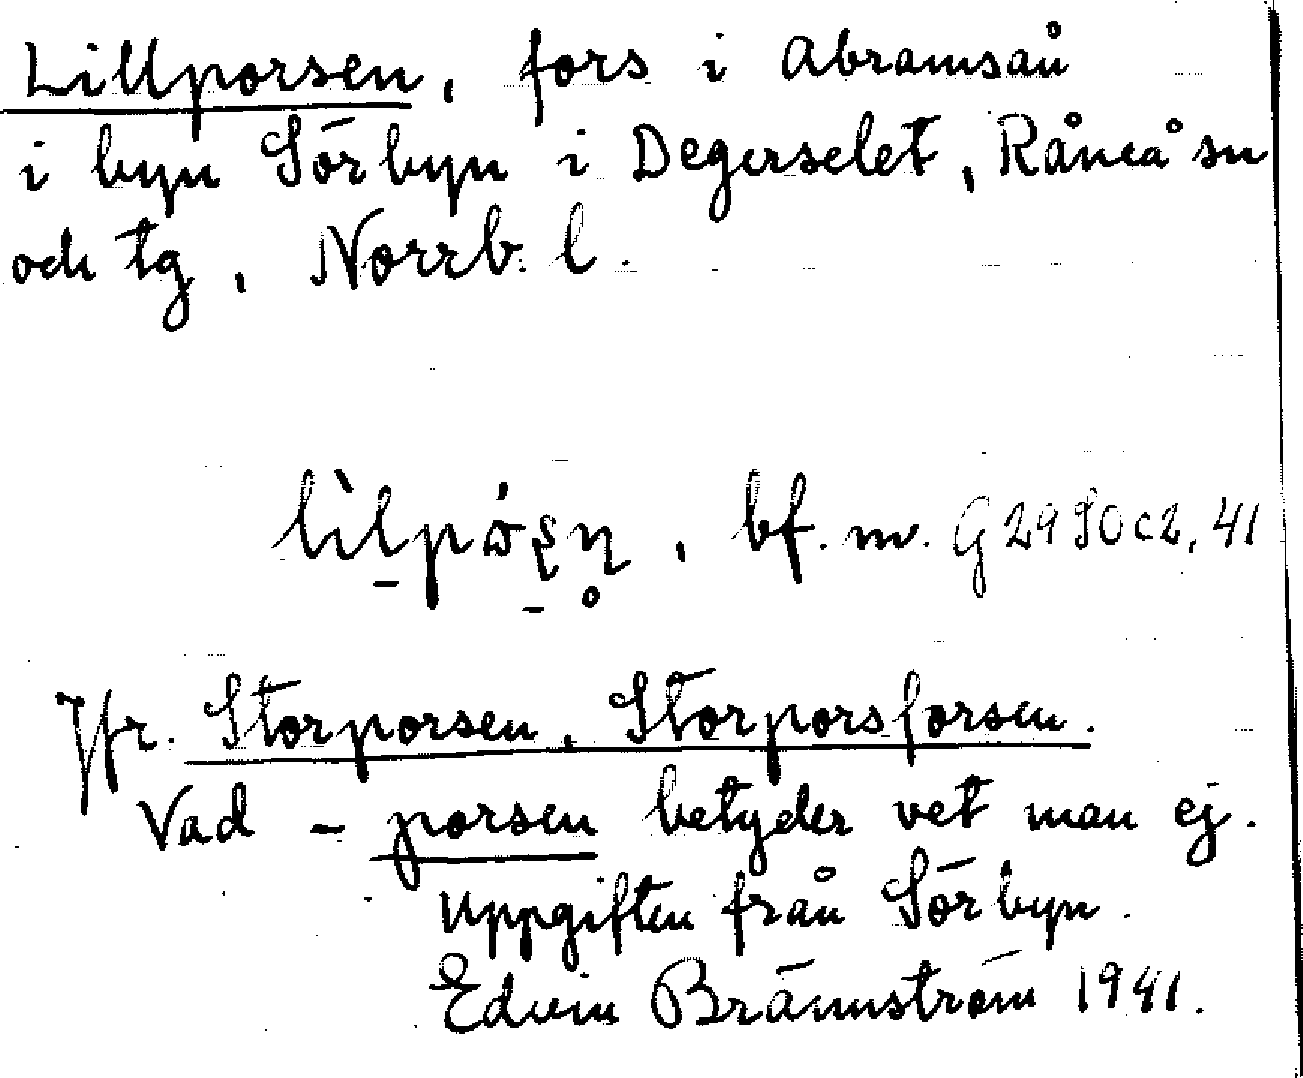 Lillporsen, fors i Abramsån
i byn Sörbyn i Degerselet, Råneå sn
och tg, Norrb. l.
bf. m. G 29 SO c2, 41
Jfr. Storporsen, Storporsforsen.
Vad - porsen betyder vet man ej.
Uppgiften från Sörbyn.
Edvin Brännström 1941.